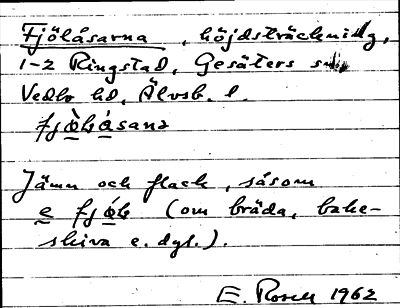 Fjölåsarna, höjdsträckning,
1-2 Ringstad, Gesäters sn,
Vedbo hd, Älvsb. l.
Jämn och flack, såsom
(om bräda, bake-
skiva e. dyl.).
E. Rosell 1962